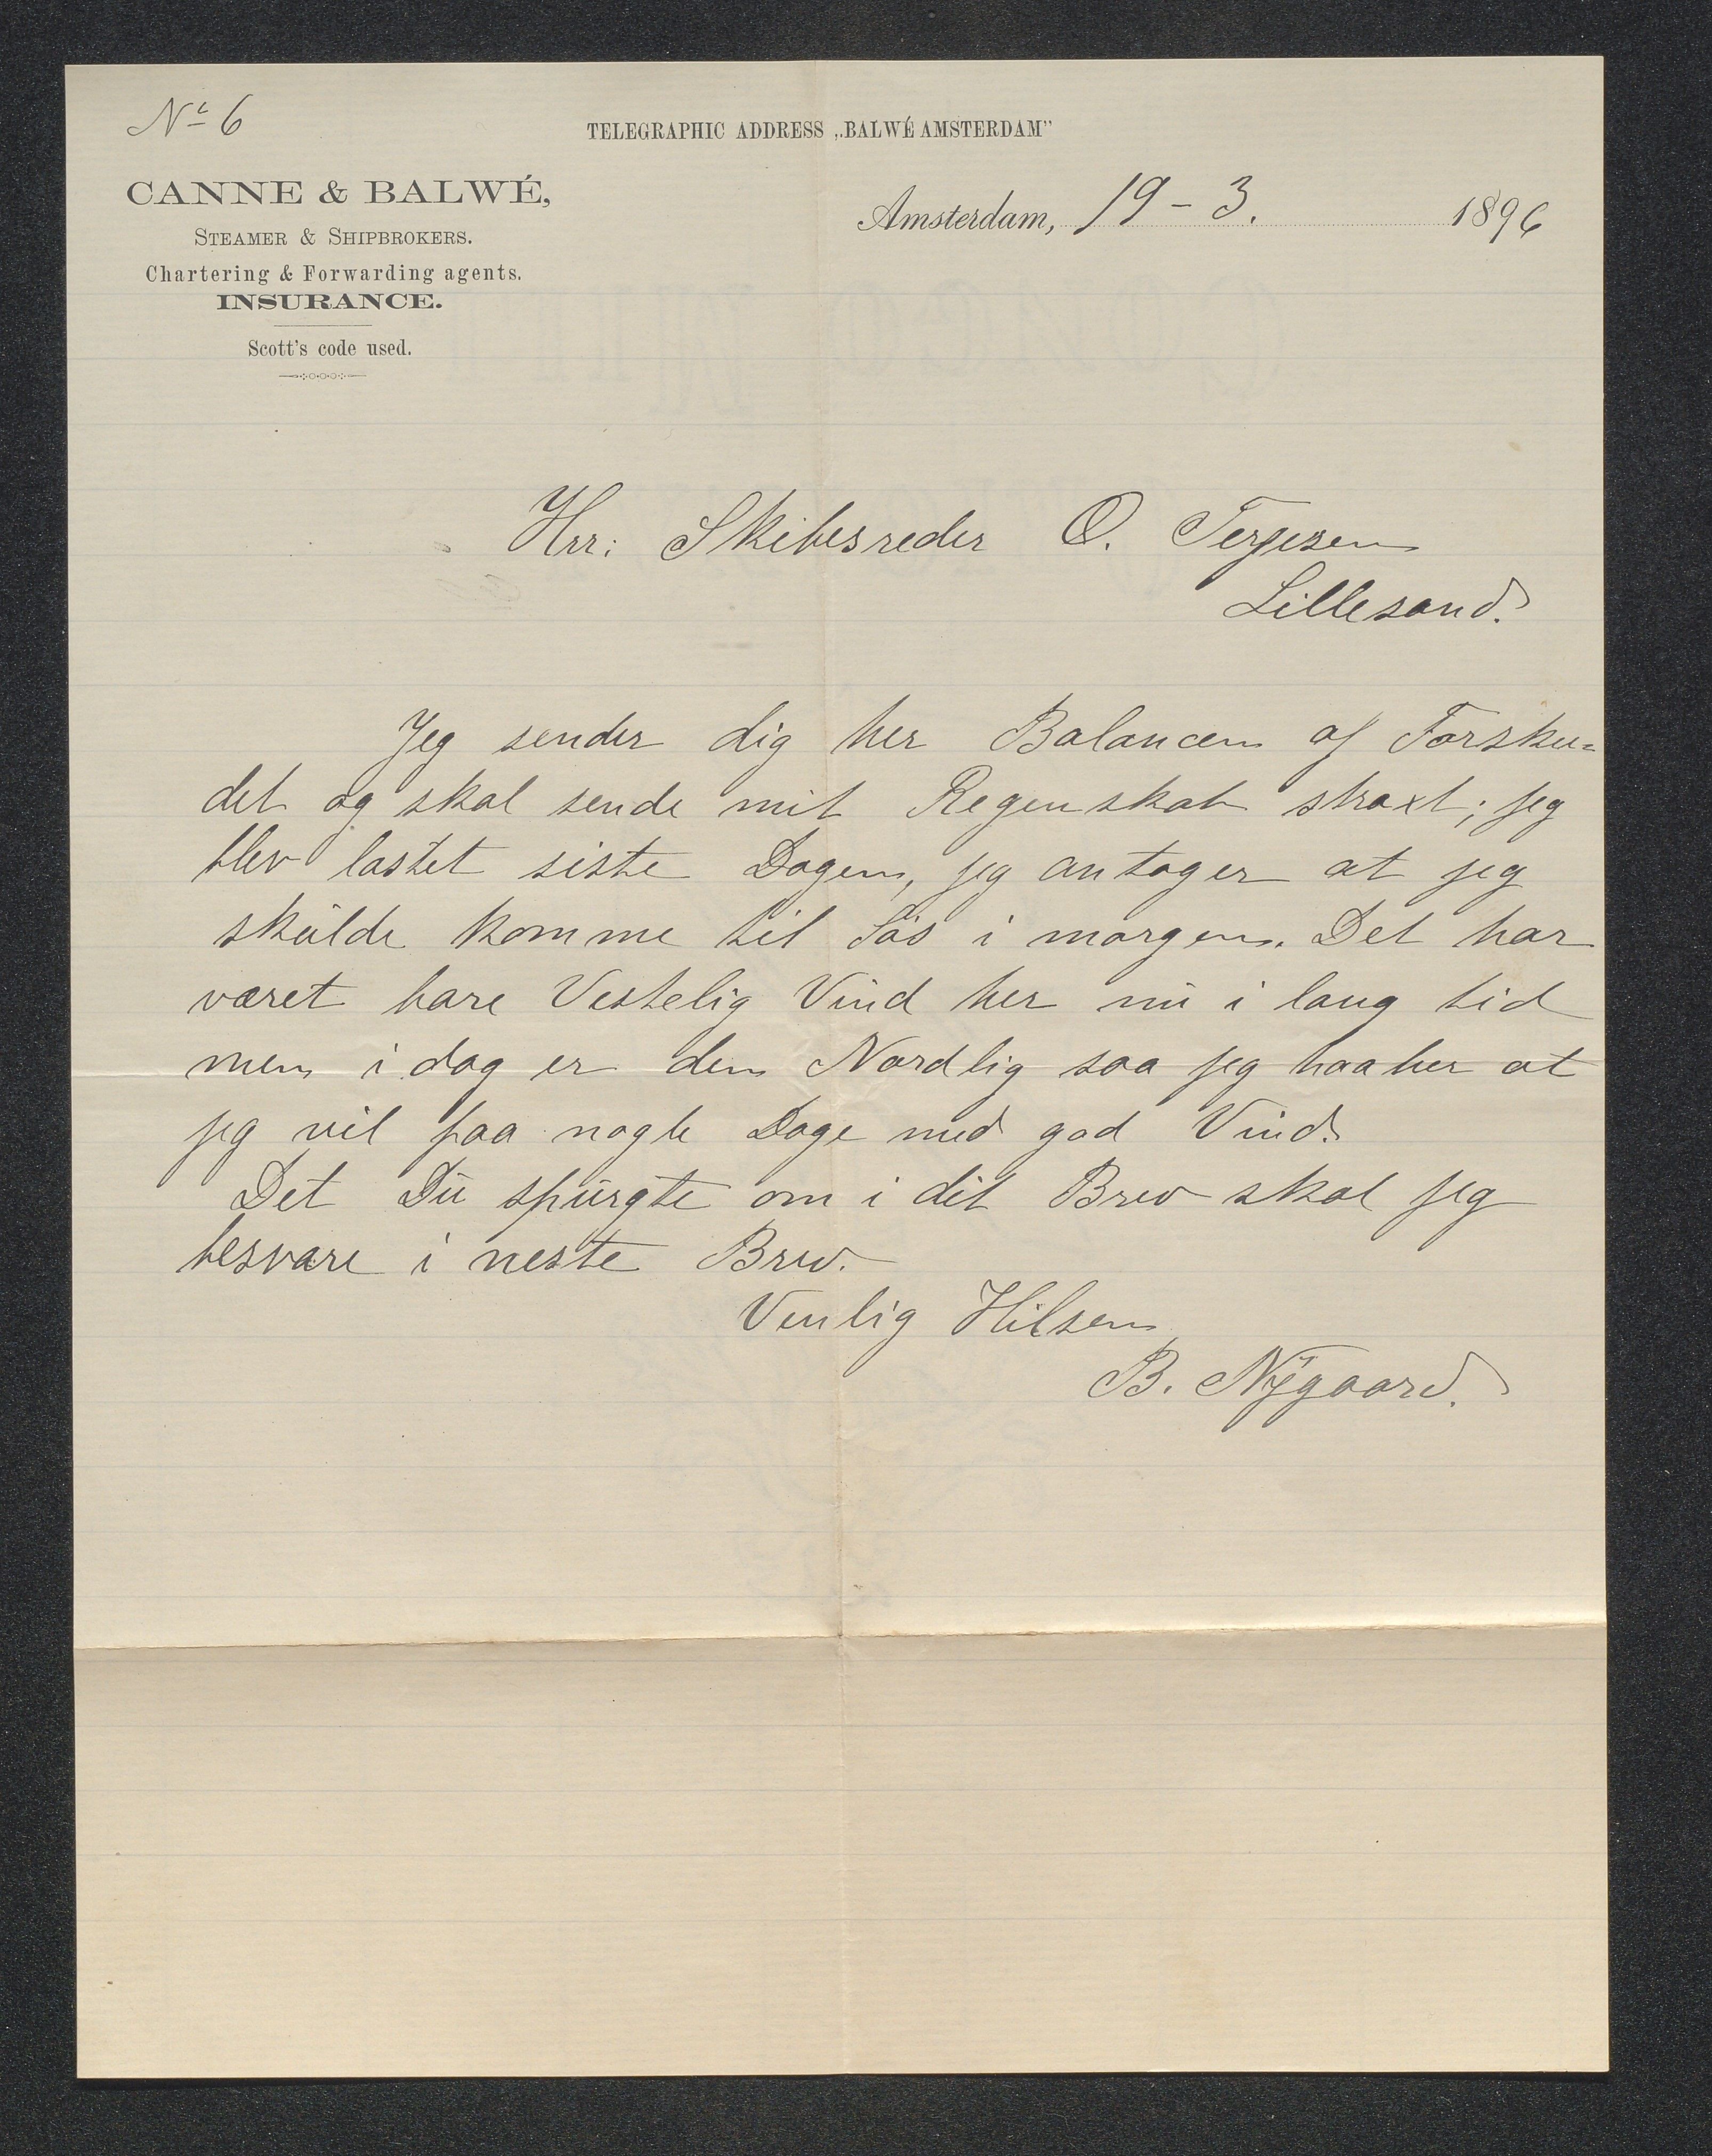 No 6
TELEGRAPHIC ADDRESS „BALWÉ AMSTERDAM”
CANNE & BALWÉ,
STEAMER & SHIPBROKERS.
Chartering & Forwarding agents.
INSURANCE.
Scott's code used.
Amsterdam, 19 - 3. 1896
Hrr: Skibesreder O. Terjesen
Lillesand.
Jeg sender dig her Balancen af Forsku=
det og skal sende mit Regenskab straxt; jeg
blev lastet siste Dagen, jeg antager at jeg
skulde komme til Søs i morgen. Det har
været bare Vestelig Vind her nu i lang tid
men i dag er den Nordlig saa jeg haaber at
jeg vil faa nogle Dage med god Vind.
Det Du spurgte om i dit Brev skal jeg
besvare i neste Brev.
Venlig Hilsen
B. Nygaard.